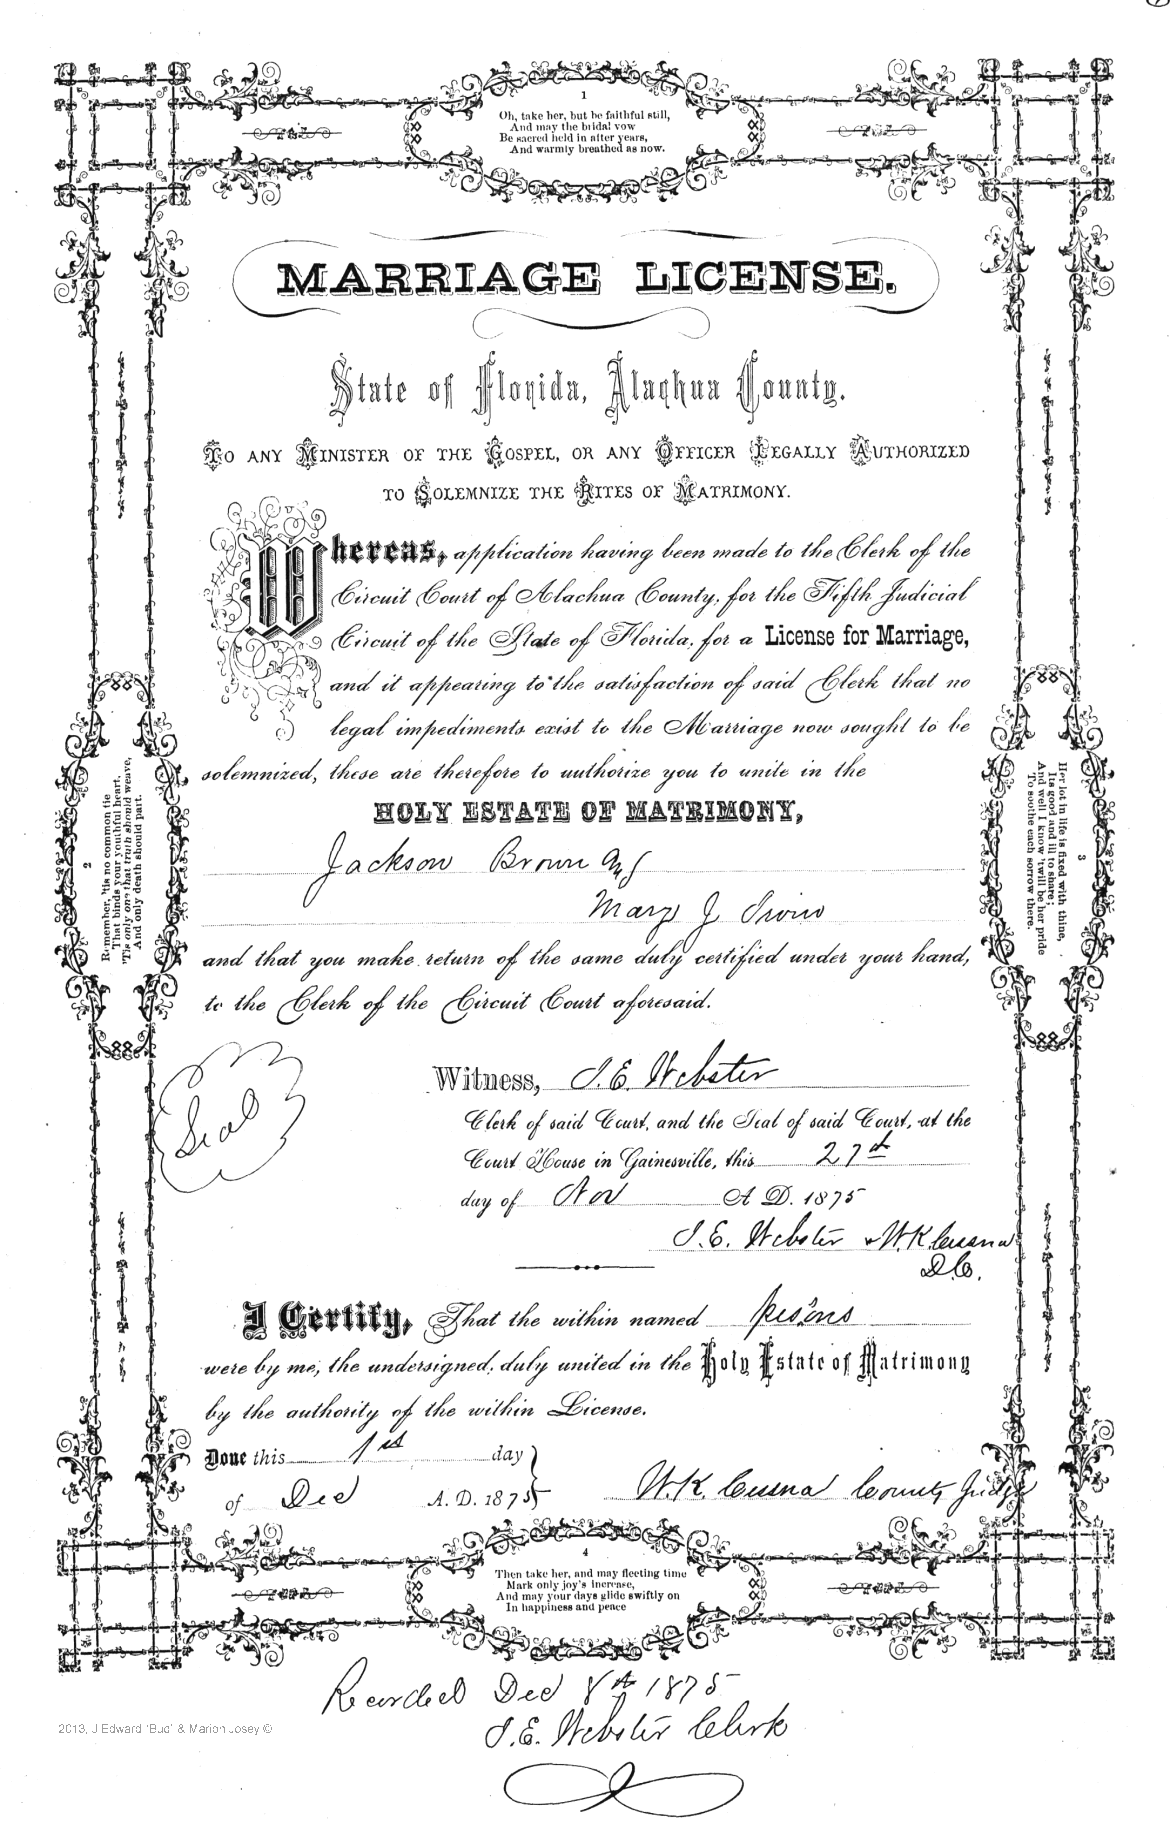 1
Oh, take her, but be faithful still,
And may the bridal vow
Be sacred held in after years,
And warmly breathed as now.
MARRIAGE LICENSE.
State of Florida, Alachua County.
TO ANY MINISTER OF THE GOSPEL, OR ANY OFFICER LEGALLY AUTHORIZED
TO SOLEMNIZE THE RITES OF MATRIMONY.
Whereas, application having been made to the Clerk of the
Circuit Court of Alachua County, for the Fifth Judicial
Circuit of the State of Florida, for a License for Marriage,
and it appearing to the satisfaction of said Clerk that no
legal impediments exist to the Marriage now sought to be
solemnized, these are therefore to authorize you to unite in the
HOLY ESTATE OF MATRIMONY,
Jackson Brown
Mary J
and that you make return of the same duly certified under your hand,
to the Clerk of the Circuit Court aforesaid.
2
Remember, 'tis no common tie
That binds your youthful heart,
'Tis only one that truth should weave,
And only death should part.
3
Her lot in life is fixed with thine,
Its good and ill to share;
And well I know 'twill be her pride
To soothe each sorrow there.
Seal
Witness, J. E. Webster
Clerk of said Court, and the Seal of said Court, at the
Court House in Gainesville, this 27th
day of Nov A D. 1875
J. E. Webster W. K. Cessna
D. C.
I Certify, That the within named persons
were by me, the undersigned, duly united in the Holy Estate of Matrimony
by the authority of the within License.
Done this 1st day
of Dec A. D. 1875
W. K. Cessna County Judge
4
Then take her, and may fleeting time
Mark only joy's increase,
And may your days glide swiftly on
In happiness and peace
Recorded Dec 8th 1875
J. E. Webster Clerk
2013, J Edward 'Bud' & Marion Josey ©